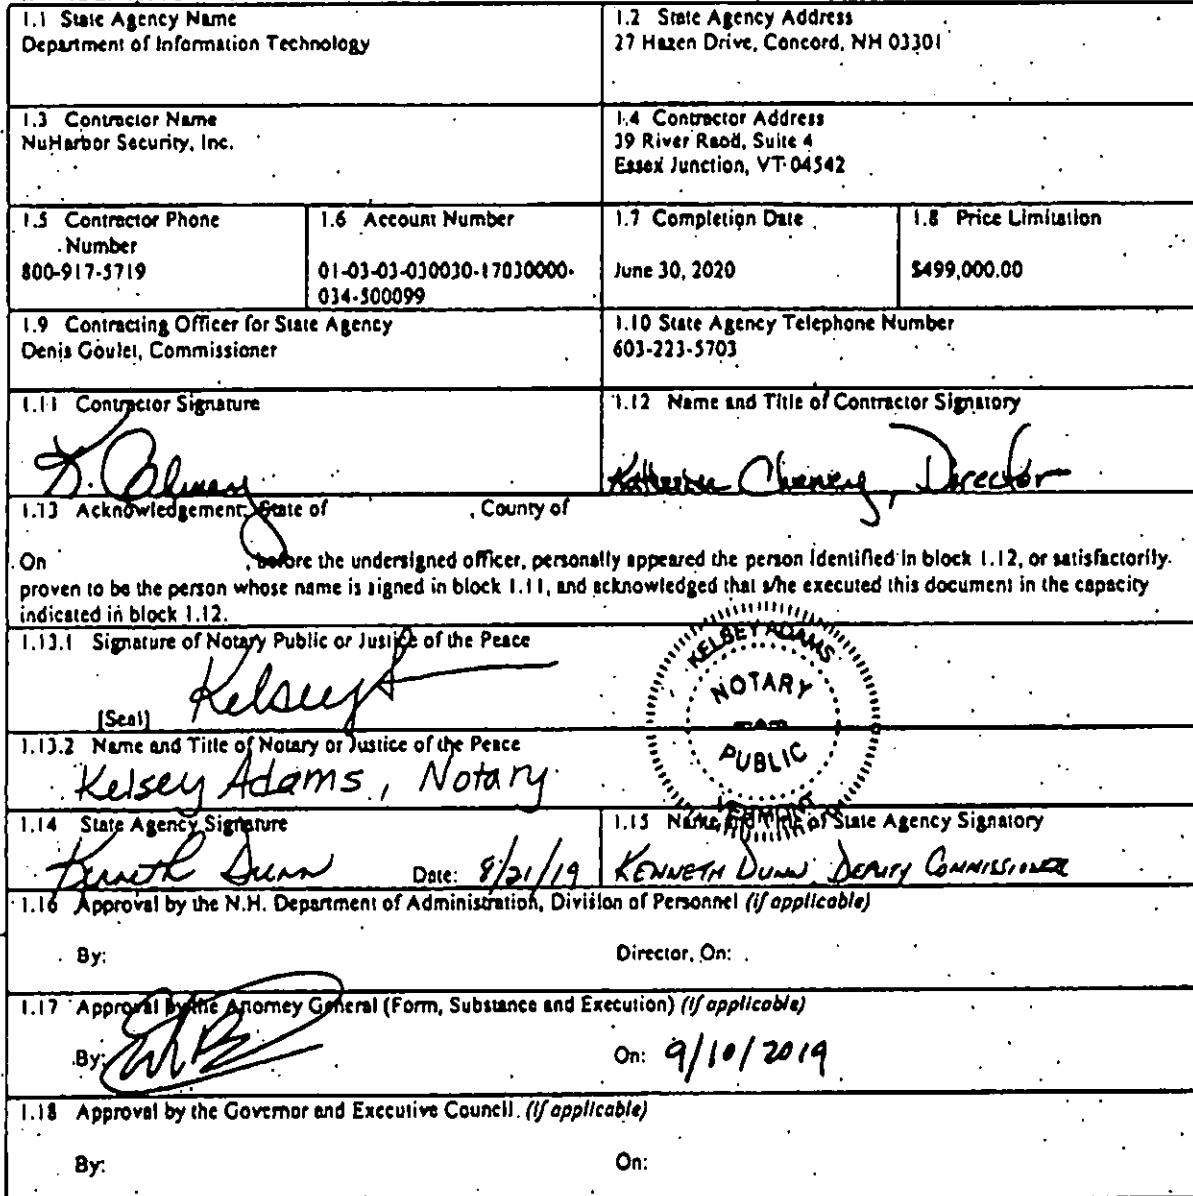 1.1 State Agency Name
Department of Information Technology
1.2 State Agency Address
27 Hazen Drive, Concord, NH 03301
1.3 Contractor Name
NuHarbor Security, Inc.
1.4 Contractor Address
39 River Raod, Suite 4
Essex Junction, VT 04542
1.5 Contractor Phone
Number
800-917-5719
1.6 Account Number
01-03-03-030030-17030000-
034-500099
1.7 Completion Date
June 30, 2020
1.8 Price Limitation
$499,000.00
1.9 Contracting Officer for State Agency
Denis Goulet, Commissioner
1.10 State Agency Telephone Number
603-223-5703
1.11 Contractor Signature
1.12 Name and Title of Contractor Signatory
Katherine Cheney, Director
1.13 Acknowledgement: State of , County of
On , before the undersigned officer, personally appeared the person identified in block 1.12, or satisfactorily
proven to be the person whose name is signed in block 1.11, and acknowledged that s/he executed this document in the capacity
indicated in block 1.12.
1.13.1 Signature of Notary Public or Justice of the Peace
Kelsey
[Seal]
KELSEY ADAMS
NOTARY
PUBLIC
VERMONT
1.13.2 Name and Title of Notary or Justice of the Peace
Kelsey Adams, Notary
1.14 State Agency Signature
Kenneth Dunn Date: 8/21/19
1.15 Name and Title of State Agency Signatory
KENNETH DUNN, DEPUTY COMMISSIONER
1.16 Approval by the N.H. Department of Administration, Division of Personnel (if applicable)
By: Director, On:
1.17 Approval by the Attorney General (Form, Substance and Execution) (if applicable)
By: On: 9/10/2019
1.18 Approval by the Governor and Executive Council (if applicable)
By: On: